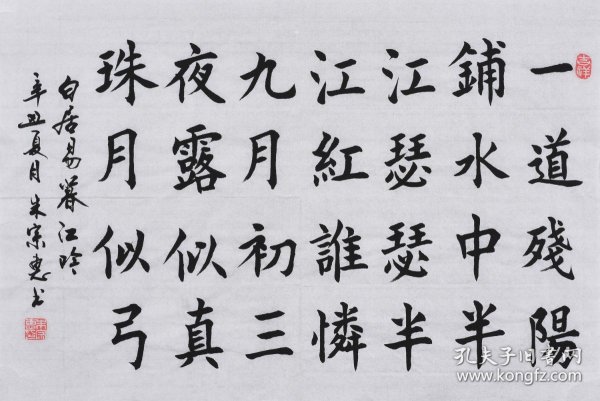 一道殘陽
鋪水中半
江瑟瑟半
江紅誰憐
九月初三
夜露似真
珠月似弓
白居易暮江吟
辛丑夏月朱宗惠书
吉祥
孔夫子旧书网
www.kongfz.com